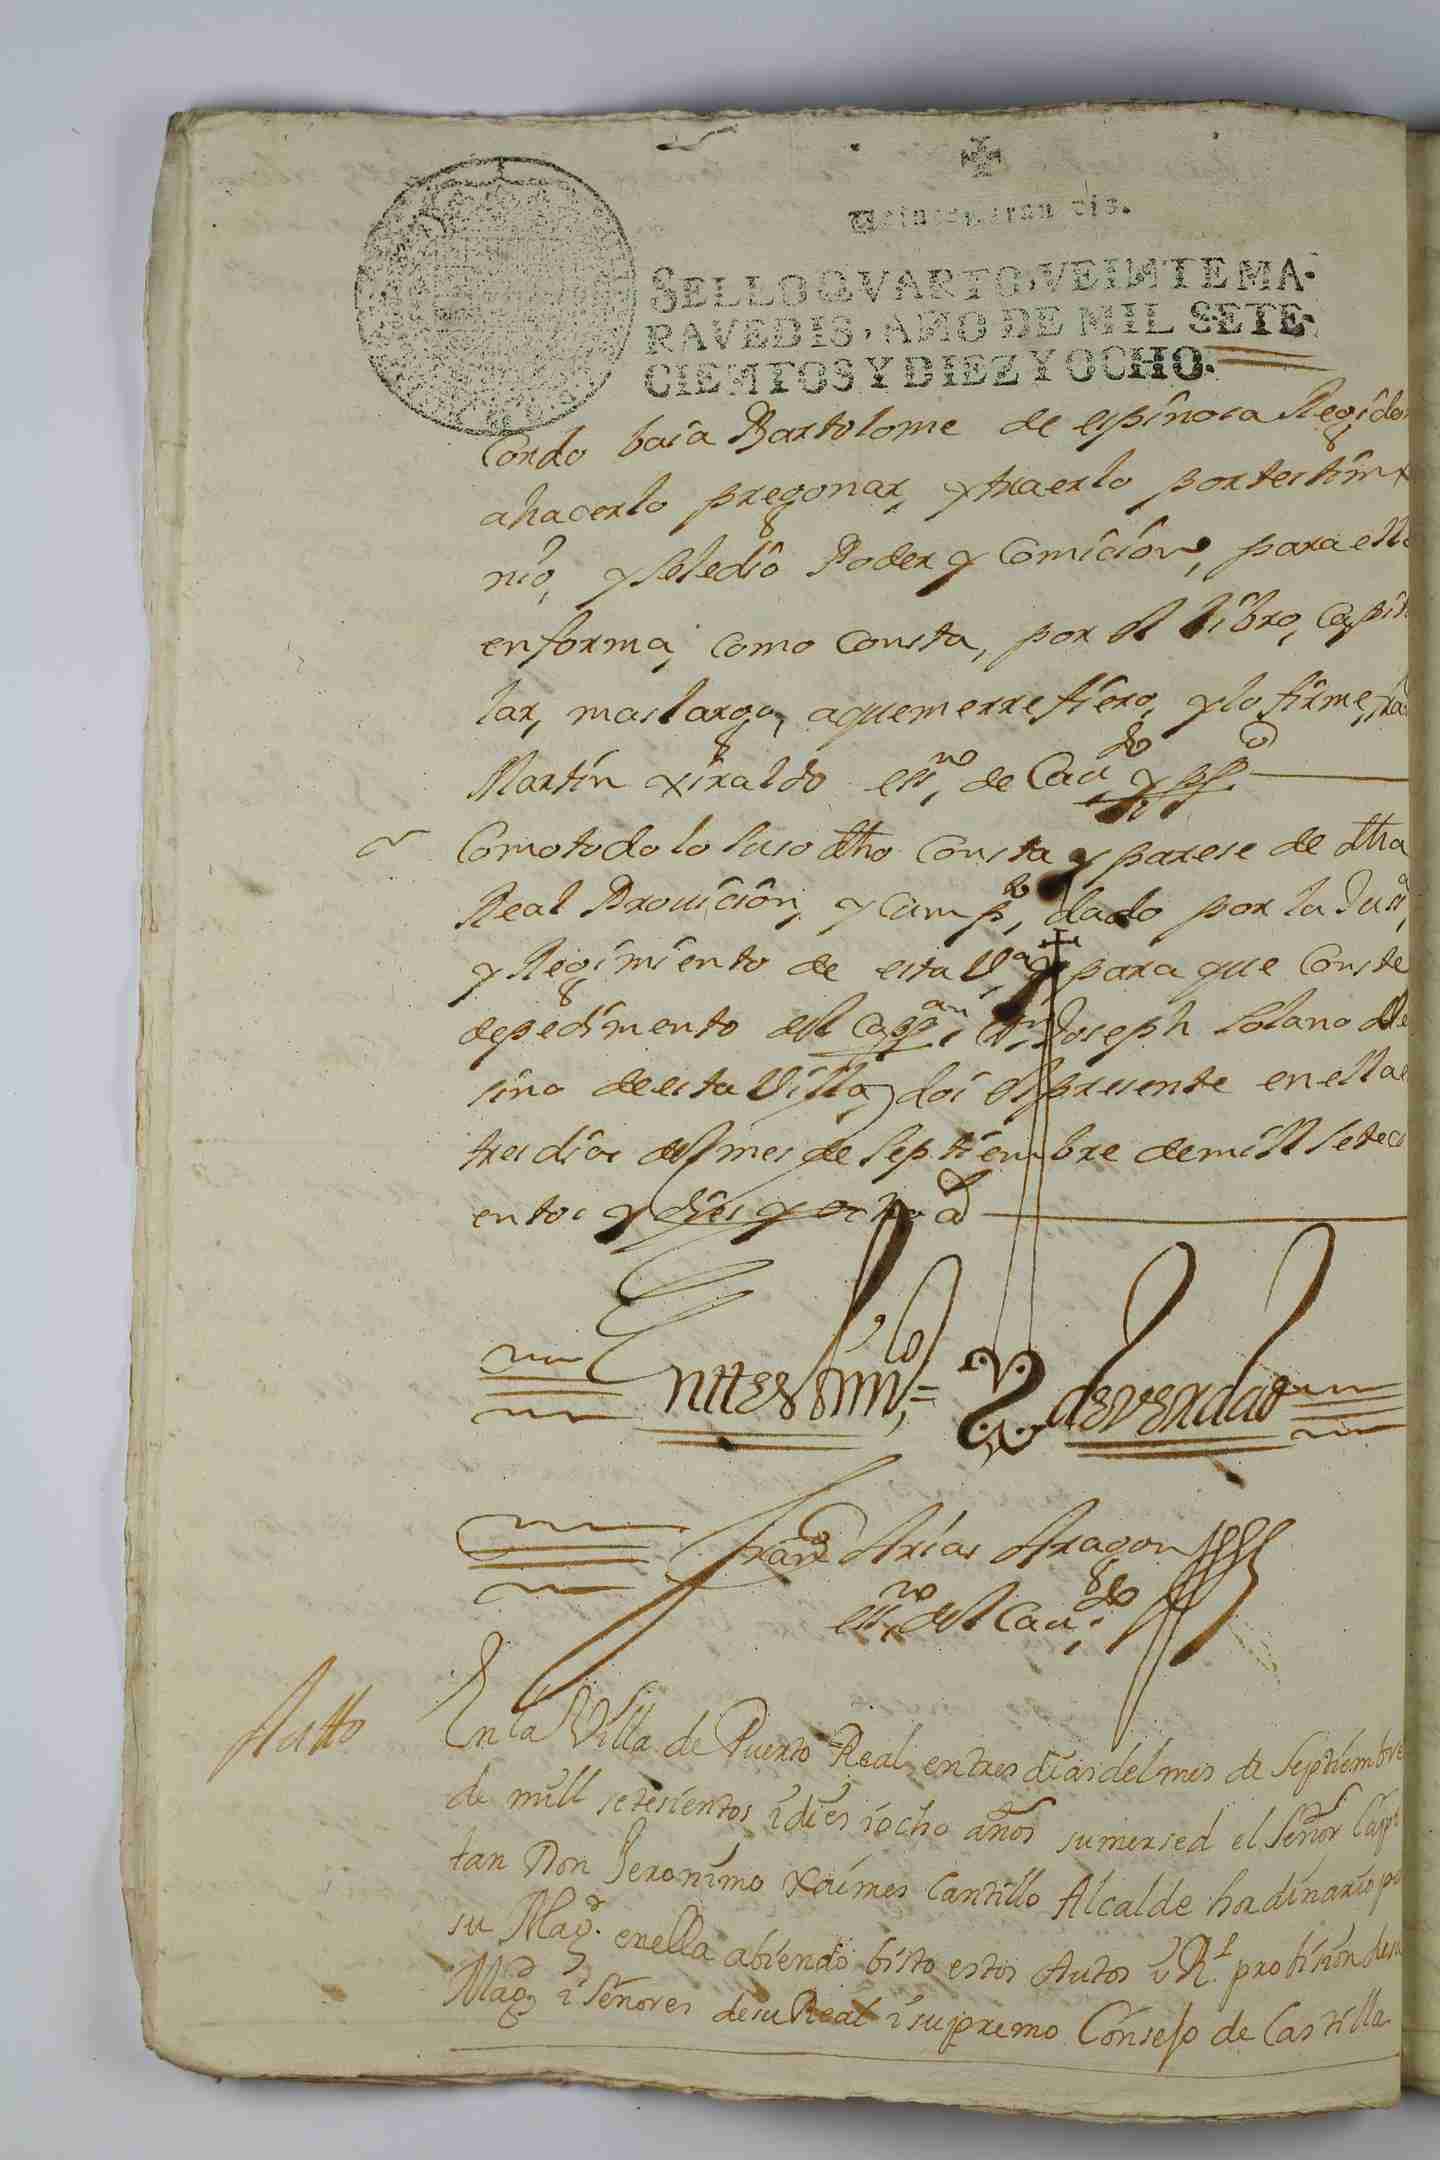 SELLO QVARTO, VEINTE MA-
RAVEDIS, AÑO DE MIL SETE-
CIENTOS Y DIEZ Y OCHO.
Cordo baia Bartolome de espinosa Regidor
ahacerlo pregonar, ytraerlo portestim
nio, yseledio Poder y Comicion, para ello
enforma, como consta, por el libro, capitu
lar, maslargo, aquemerrefiero, ylo firme,
Martin xiraldo essno, de Caudo y ppco
Comotodo lo suso dho consta y parese de dha
Real Prouicion, y cumpto, dado por la Jusa,
y Regimiento de esta Va, y para que conste
depedimento del cappan, dn Joseph solano Ve
sino deesta Villa, doi el presente enella e
tres dias del mes de septiembre demill setesi
entos y dies y ocho as
Entesstimlo = de verdad
Franco Arias Aragon
essno del Caudo
Autto
En la Villa de Puerto Real entres dias del mes de Septiembre
de mill setesientos idies iocho años sumersed el Señor Capi
tan Don Jeronimo Xaimes Cantillo Alcalde hordinario por
su Magd. enella abiendo bisto estos Autos i Rl. probision desu
Magd i Señores desu Real isupremo Consejo de Castilla